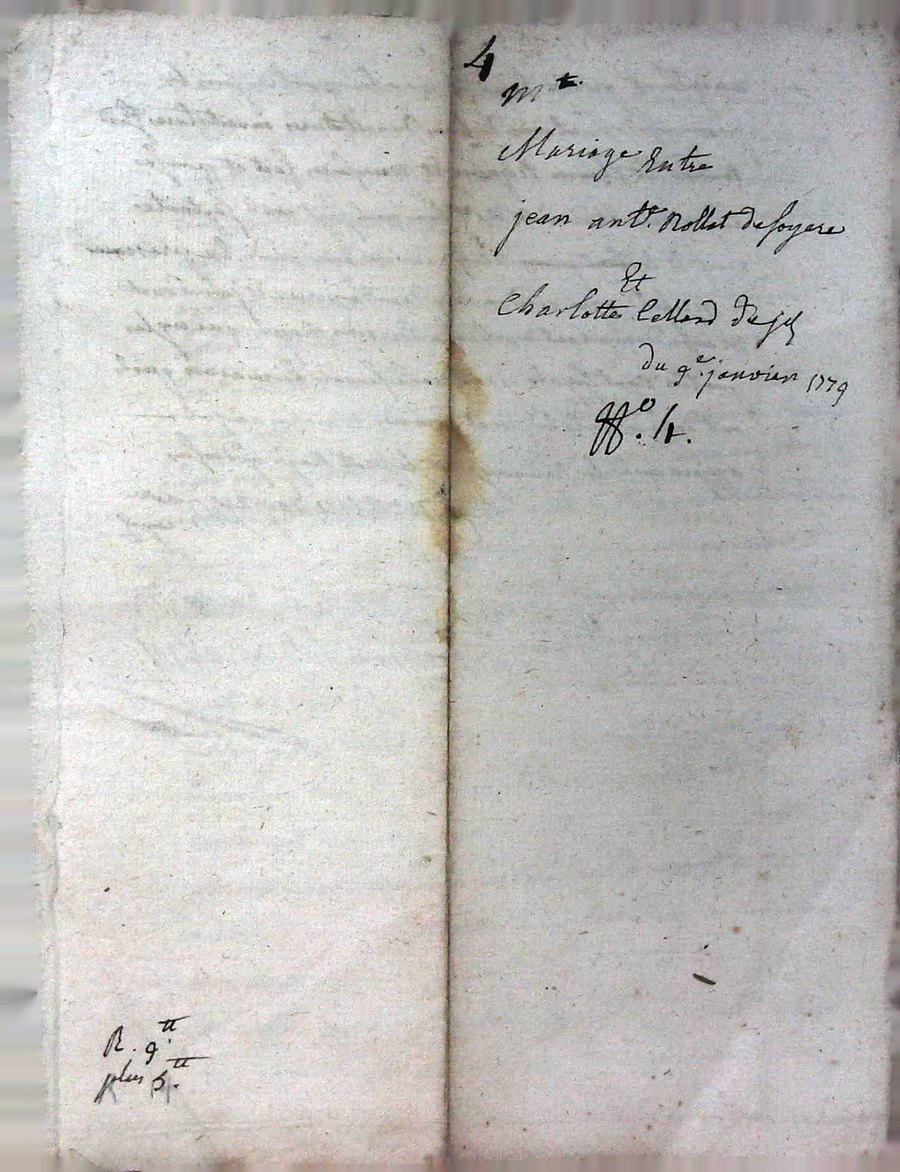 4
mt.
Mariage Entre
jean antt. Rollet de soyere
Et
Charlotte Cellard du
du 9e. janvier 1779
No. 4.
R. 9tt
plus 5.tt